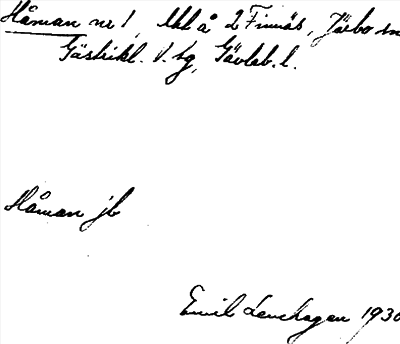 Håman nr 1, lht å 2 Finnäs, Järbo sn
Gästrikl. V. tg, Gävleb. l.
Håman jb
Emil Lenhagen 1930